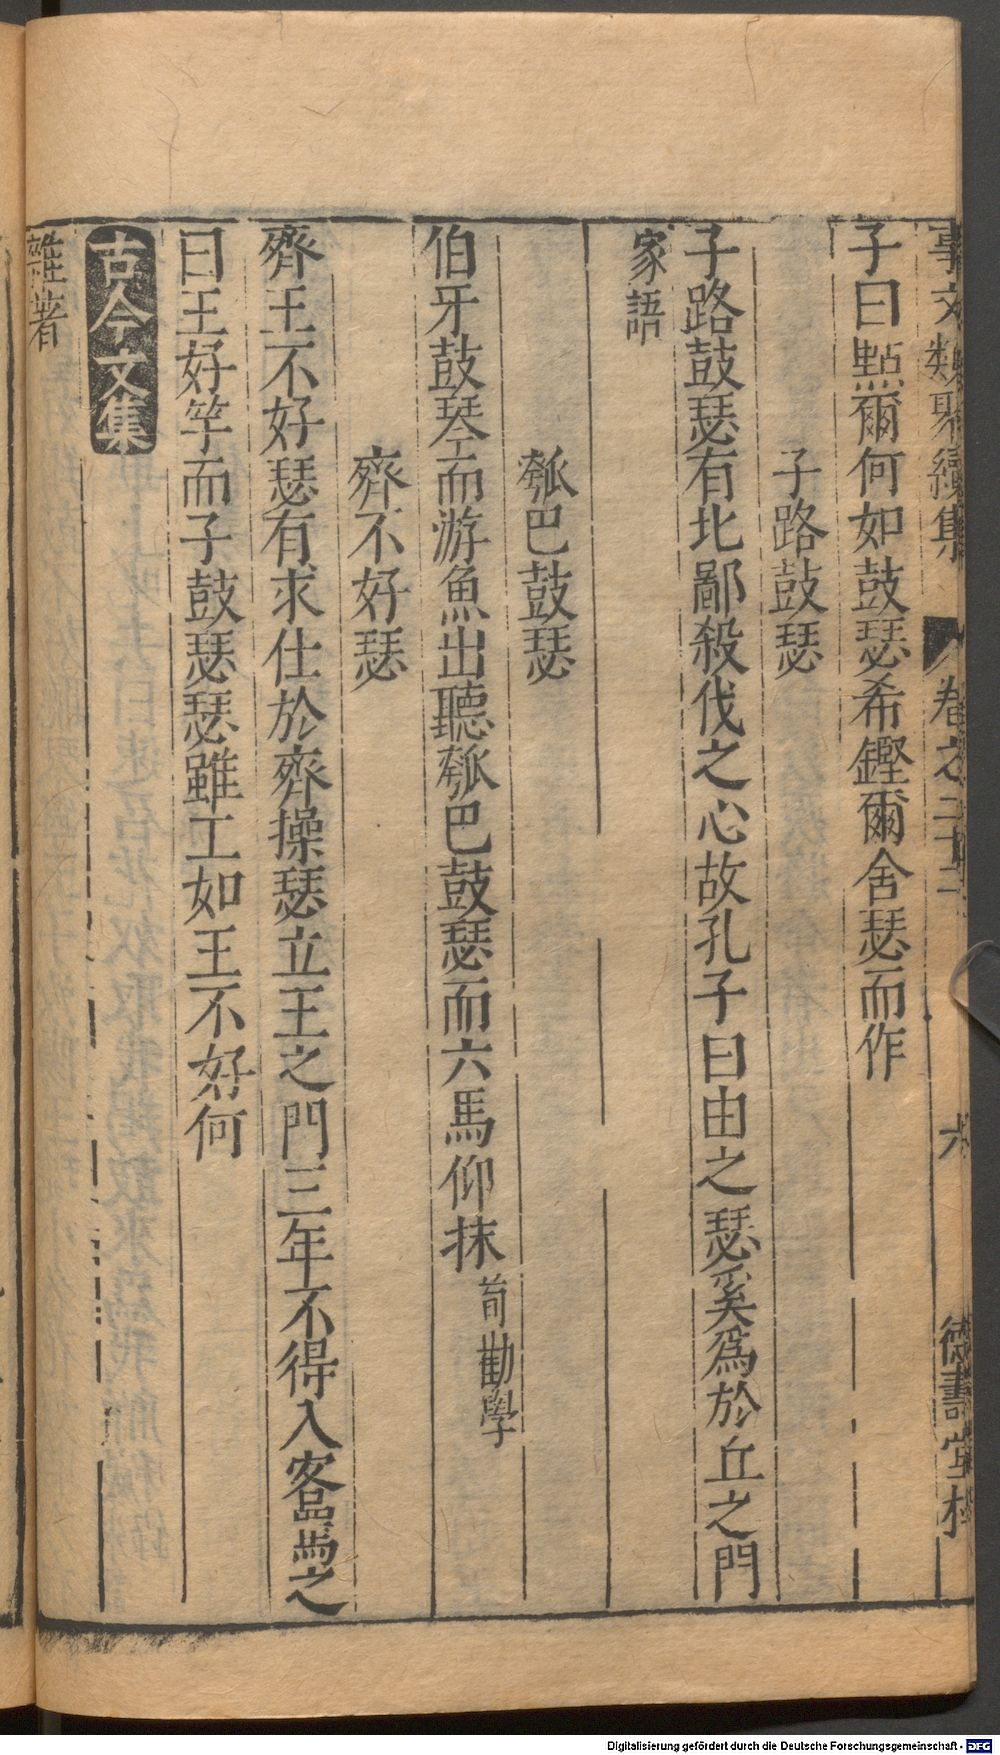 事文類聚續集 卷之二十二 六 德壽堂梓
子曰㸃爾何如鼓瑟希鏗爾舍瑟而作
子路鼓瑟
子路鼓瑟有北鄙殺伐之心故孔子曰由之瑟奚爲於丘之門
家語
瓠巴鼓瑟
伯牙鼓琴而游魚出聽瓠巴鼓瑟而六馬仰抹 荀勸學
齊不好瑟
齊王不好瑟有求仕於齊操瑟立王之門三年不得入客罵之
曰王好竽而子鼓瑟瑟雖工如王不好何
古今文集
雜著
Digitalisierung gefördert durch die Deutsche Forschungsgemeinschaft - DFG